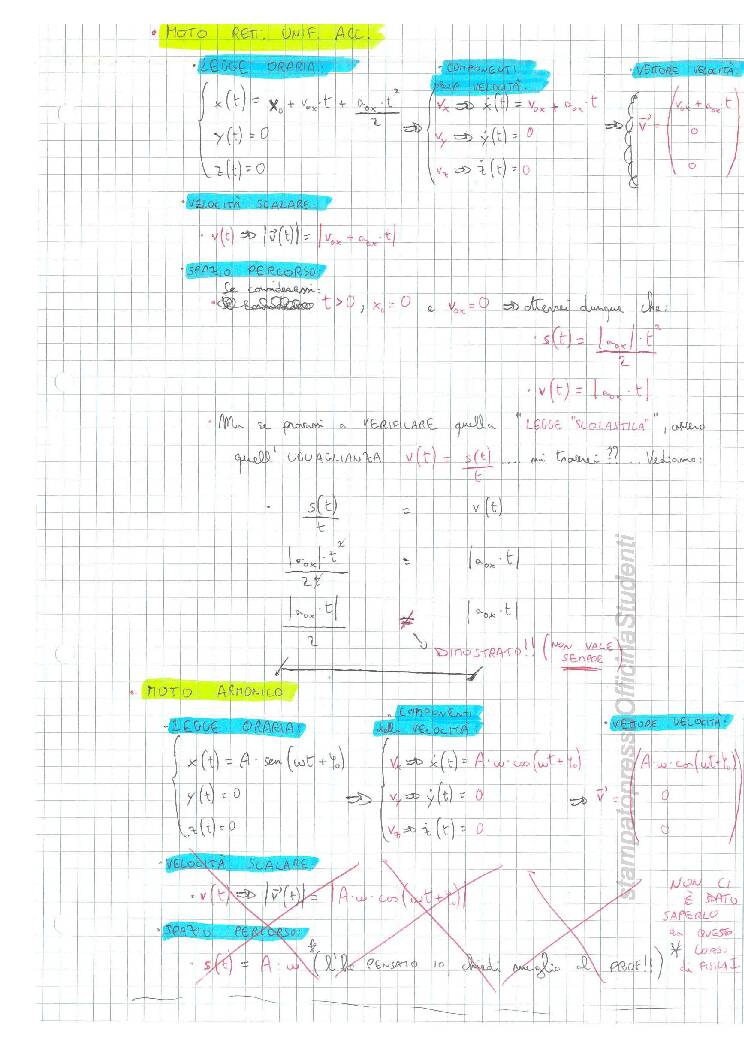 • MOTO RETT. UNIF. ACC.
• LEGGE ORARIA:
x(t) = x₀ + v₀ₓ·t + a₀ₓ·t²/2
y(t) = 0
z(t) = 0
⇒
• COMPONENTI
DELLA VELOCITÀ:
vₓ ⇒ ẋ(t) = v₀ₓ + a₀ₓ·t
v_y ⇒ ẏ(t) = 0
v_z ⇒ ż(t) = 0
⇒
• VETTORE VELOCITÀ:
v⃗ = (v₀ₓ + a₀ₓ·t
0
0)
• VELOCITÀ SCALARE:
• v(t) ⇒ |v⃗(t)| = |v₀ₓ + a₀ₓ·t|
• SPAZIO PERCORSO:
Se considerassi:
• t>0, x₀=0 e v₀ₓ=0 ⇒ otterrei dunque che:
• s(t) = |a₀ₓ|·t²/2
• v(t) = |a₀ₓ·t|
• Ma se provassi a VERIFICARE quella "LEGGE "SCOLASTICA", ovvero
quell' UGUAGLIANZA v(t) = s(t)/t .... mi troverei?? .... Vediamo:
• s(t)/t = v(t)
|a₀ₓ|·t²/2t = |a₀ₓ·t|
|a₀ₓ·t|/2 ≠ |a₀ₓ·t|
DIMOSTRATO!! (NON VALE
SEMPRE)
• MOTO ARMONICO
• LEGGE ORARIA:
x(t) = A·sen(ωt+φ₀)
y(t) = 0
z(t) = 0
⇒
• COMPONENTI
della VELOCITÀ:
vₓ ⇒ ẋ(t) = A·ω·cos(ωt+φ₀)
v_y ⇒ ẏ(t) = 0
v_z ⇒ ż(t) = 0
⇒
• VETTORE VELOCITÀ:
v⃗ = (A·ω·cos(ωt+φ₀)
0
0)
• VELOCITÀ SCALARE:
• v(t) ⇒ |v⃗(t)| = |A·ω·cos(ωt+φ₀)|
• SPAZIO PERCORSO:
• s(t) = A·ω * (l'ho PENSATO IO chiedi meglio al PROF!!)
NON CI
È DATO
SAPERLO
in QUESTO
* CORSO
di FISICA I.
stampatopressoOfficinaStudenti